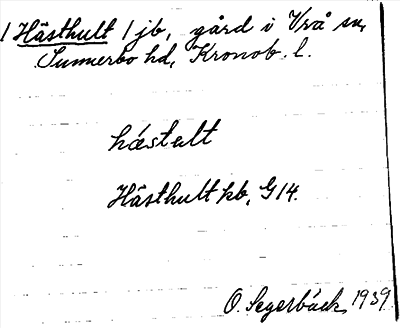 / Hästhult / jb, gård i Vrå sn,
Sunnerbo hd, Kronob. l.
hástult
Hästhult kb, G 14.
O. Segerbäck 1939